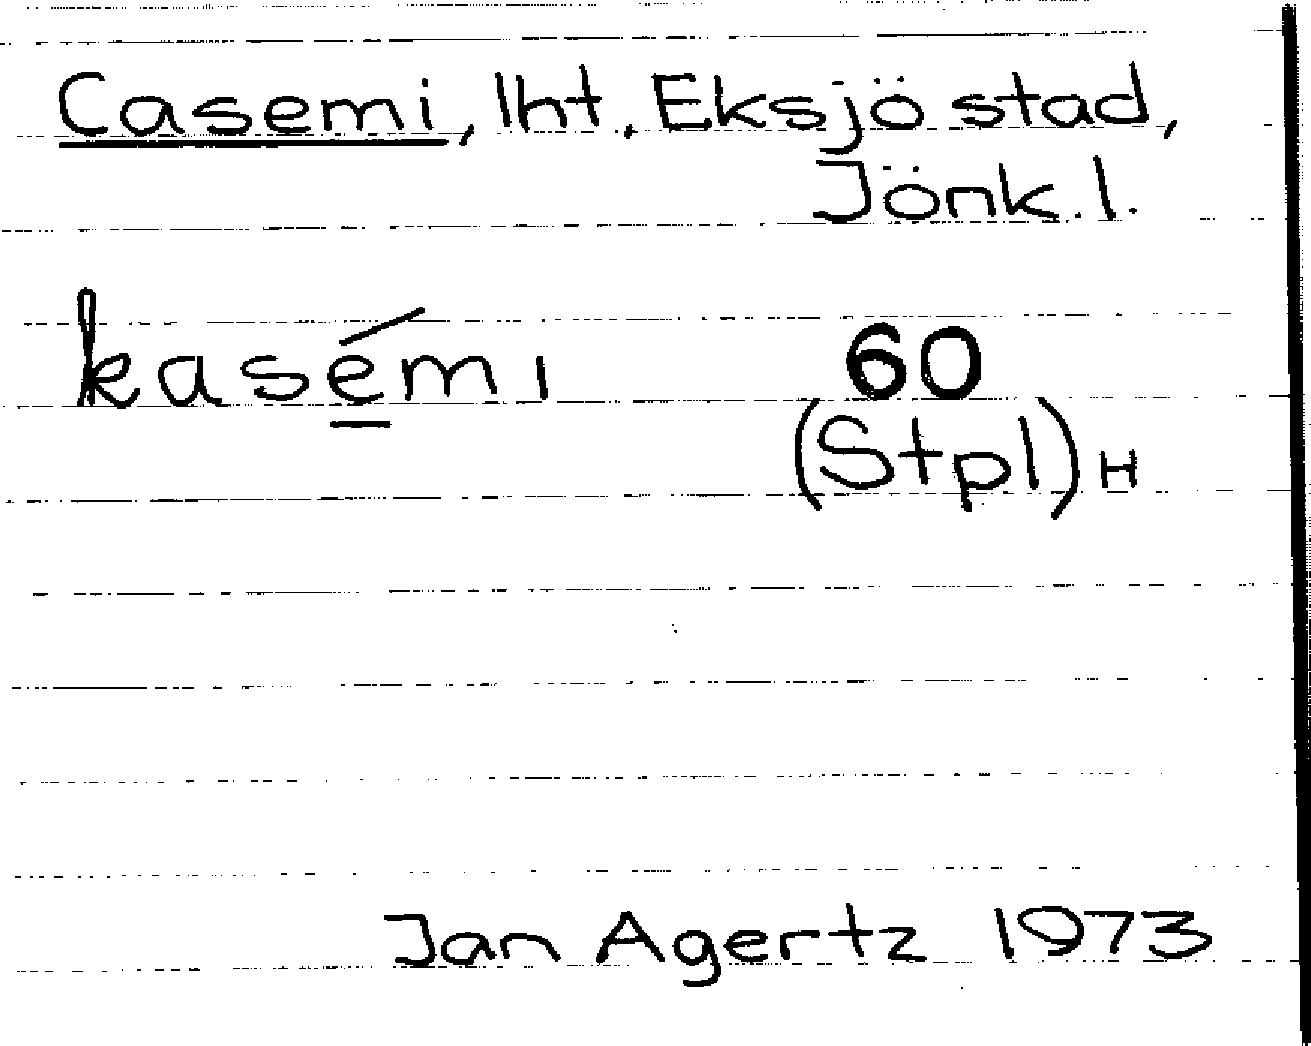 Casemi, lht, Eksjö stad,
Jönk.l.
kasémı 60
(Stpl) H
Jan Agertz 1973